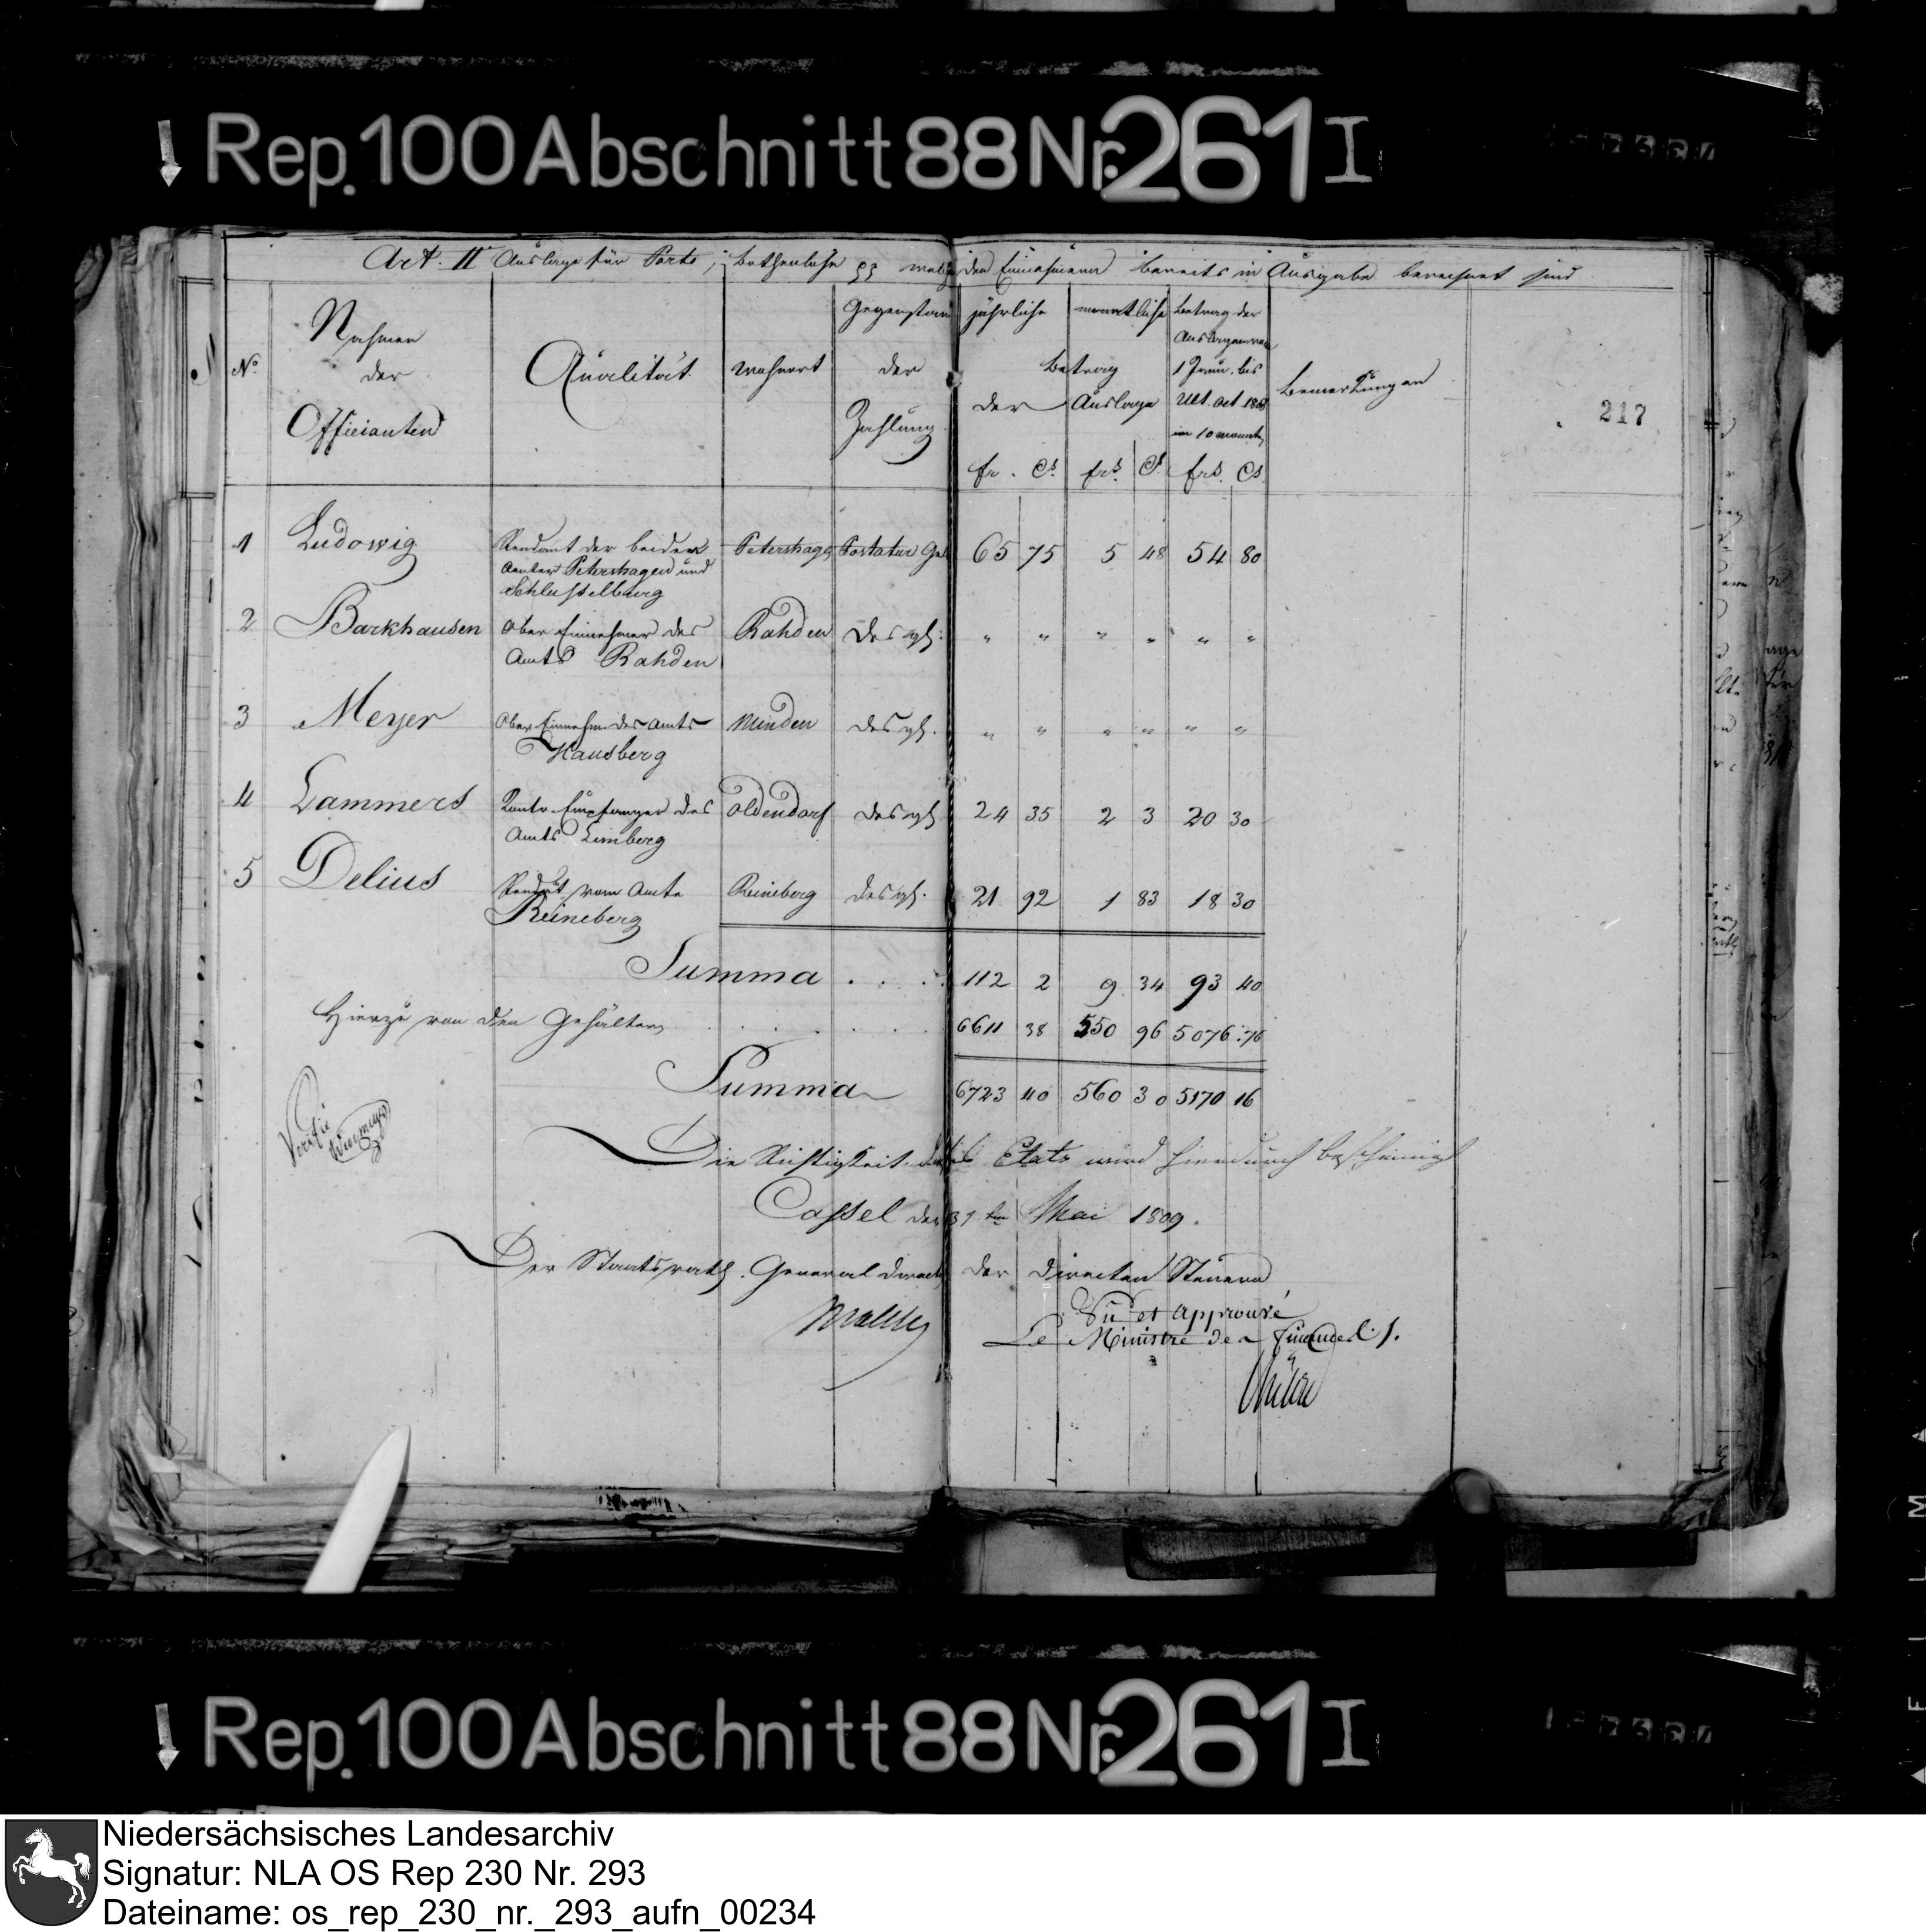 Rep. 100 Abschnitt 88 Nr. 261 I
Art. II Auslage für Porto, Bothenlohn pp welche den Einnehmern bereits in Ausgabe berechnet sind
No. Nahmen der Officianten Qualität Wohnort Gegenstand der Zahlung jährliche monatliche Betrag der Auslage Betrag der Auslagen vom 1 Janu. bis Ult. Oct. 1808 in 10 Monath Bemerkungen
217
fr. Cs. frs. Cs. frs. Cs.
1 Ludowig Rendant der beiden Petershag Portatur Gel 65 75 5 48 54 80
Aemter Petershagen und
Schlusselburg
2 Barkhausen Ober Einnehmer des Rahden desgl. " " " " " "
Amts Rahden
3 Meyer Ober Einnehm. des Amts Minden desgl. " " " " " "
Hausberg
4 Lammers Empfanger des Oldendorf desgl. 24 35 2 3 20 30
Amts Limberg
5 Delius Rendant vom Amte Reineberg desgl. 21 92 1 83 18 30
Reineberg
Summa . . . . 112 2 9 34 93 40
Hierzu von den Gehältern . . . . . . 6611 38 550 96 5076 76
Summa 6723 40 560 30 5170 16
Verifié
Die Richtigkeit dieses Etats wird hierdurch bescheinigt
Cassel den 31ten Mai 1809.
Der Staatsrath. General Direct der directen Steuern
Malchus
Vu et approuvé
Le Ministre des finances
Rep. 100 Abschnitt 88 Nr. 261 I
Niedersächsisches Landesarchiv
Signatur: NLA OS Rep 230 Nr. 293
Dateiname: os_rep_230_nr._293_aufn_00234